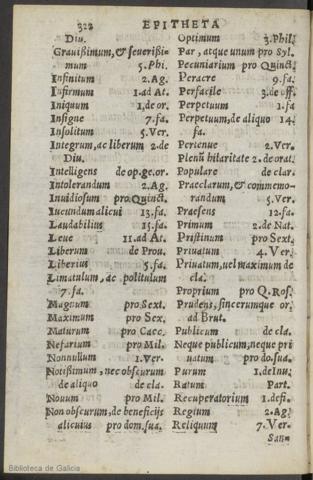 322 EPITHETA
Diu.
Grauißimum, & seuerißi-
mum 5.Phi.
Infinitum 2.Ag.
Infirmum 1.ad At.
Iniquum 1.de or.
Insigne 7.fa.
Insolitum 5.Ver.
Integrum, ac liberum 2.de
Diu.
Intelligens de op.ge.or.
Intolerandum 2.Ag.
Inuidiosum pro Quinct.
Iucundum alicui 13.fa.
Laudabilius 15.fa.
Leue 11.ad At.
Liberum de Prou.
Liberius 5.fa.
Limatulum, ac politulum
7.fa.
Magnum pro Sext.
Maximum pro Sex.
Maturum pro Caec.
Nefarium pro Mil.
Nonnullum 1.Ver.
Notißimum, nec obscurum
de aliquo de cla.
Nouum pro Mil.
Non obscurum, de beneficijs
alicuius pro dom.sua.
Optimum 3.Phil.
Par, atque unum pro Syl.
Pecuniarium pro Quinct.
Peracre 9.fa.
Perfacile 3.de off.
Perpetuum 1.fa
Perpetuum, de aliquo 14.
fa.
Pertenue 2.Ver.
Plenū hilaritate 2.de orat.
Populare de clar.
Praeclarum, & commemo-
randum 5.Ver.
Praesens 12.fa.
Primum 2.de Nat.
Pristinum pro Sext.
Priuatum 4.Ver.
Priuatum, uel maximum de
cla.
Proprium pro Q.Ros.
Prudens, sincerumque or.
ad Brut.
Publicum de cla.
Neque publicum, neque pri
uatum pro do.sua.
Purum 1.de Inu.
Ratum Part.
Recuperatorium 1.de fi.
Regium 2.Ag.
Reliquum 7.Ver.
San-
Biblioteca de Galicia